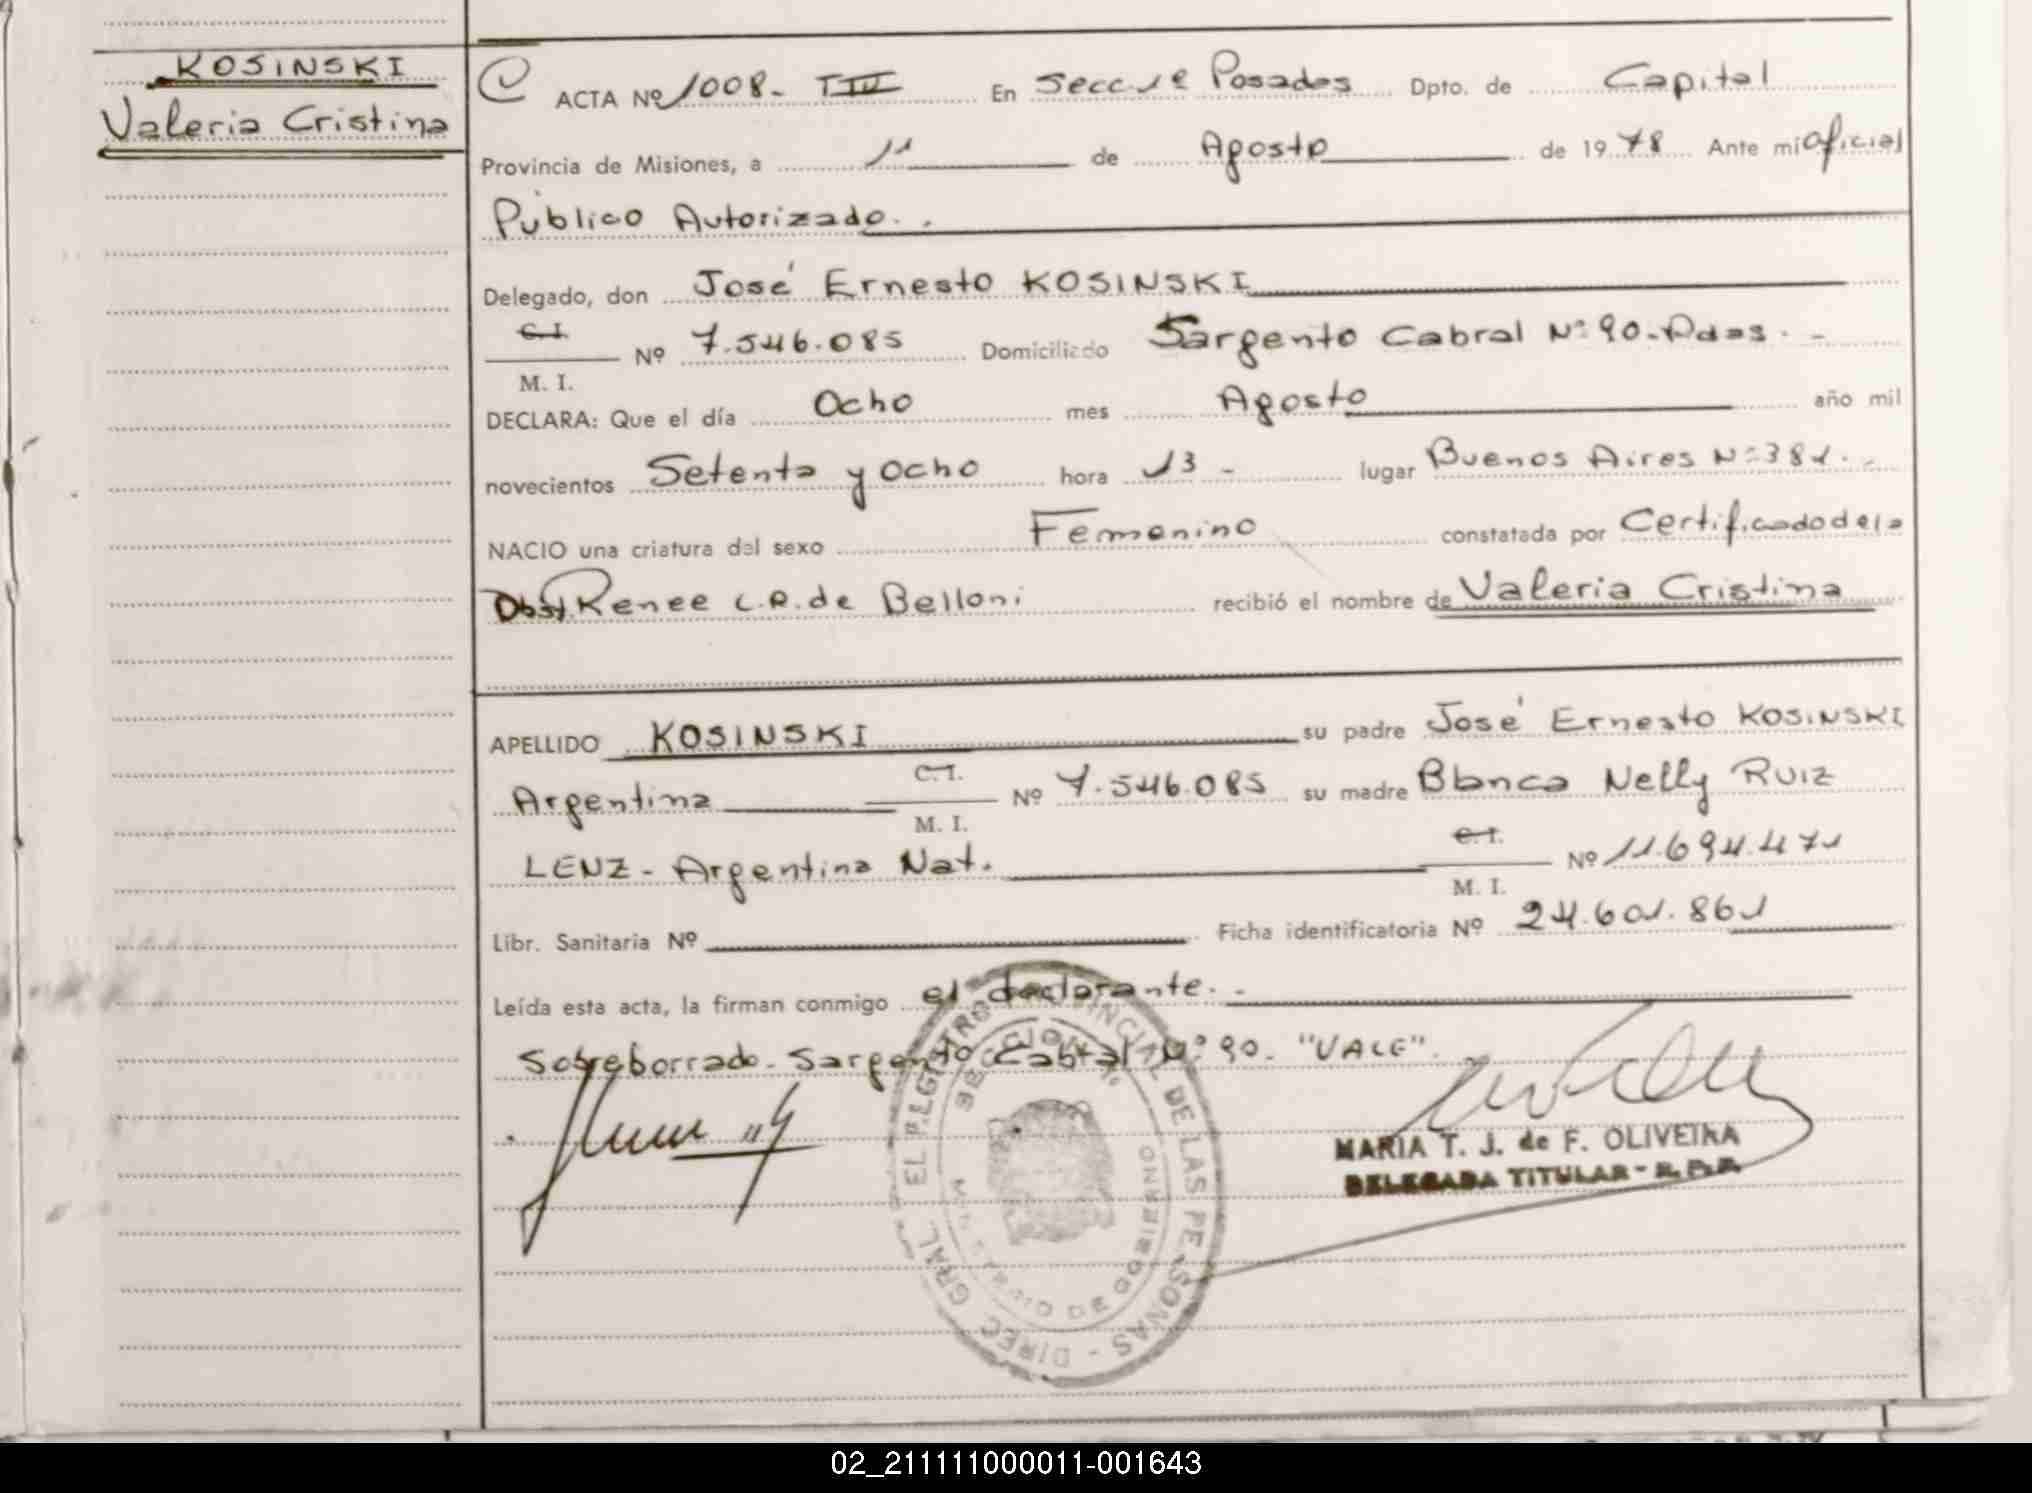 KOSINSKI
Valeria Cristina
C ACTA Nº 1008- TIII En Secc 1ª Posadas Dpto. de Capital
Provincia de Misiones, a 11 de Agosto de 1978 Ante mi oficial
Público Autorizado.
Delegado, don José Ernesto KOSINSKI
C.I.
M. I. Nº 7.546.085 Domiciliado Sargento Cabral Nº 90-Pdas. -
DECLARA: Que el día Ocho mes Agosto año mil
novecientos Setenta y Ocho hora 13 - lugar Buenos Aires Nº 381.-
NACIO una criatura del sexo Femenino constatada por Certificado de la
Obst. Renee L.R. de Belloni recibió el nombre de Valeria Cristina
APELLIDO KOSINSKI su padre José Ernesto KOSINSKI
Argentina C.I. M. I. Nº 7.546.085 su madre Blanca Nelly RUIZ
LENZ - Argentina Nat. C.I. M. I. Nº 11.694.471
Libr. Sanitaria Nº Ficha identificatoria Nº 24.601.861
Leída esta acta, la firman conmigo el declarante. -
Sobreborrado - Sargento Cabral Nº 90. "VALE".
DIREC. GRAL. DEL REGISTRO PROVINCIAL DE LAS PERSONAS -
SECCION 1ª
MINISTERIO DE GOBIERNO
MARIA T. J. de F. OLIVEIRA
DELEGADA TITULAR - R. P. P.
02_211111000011-001643